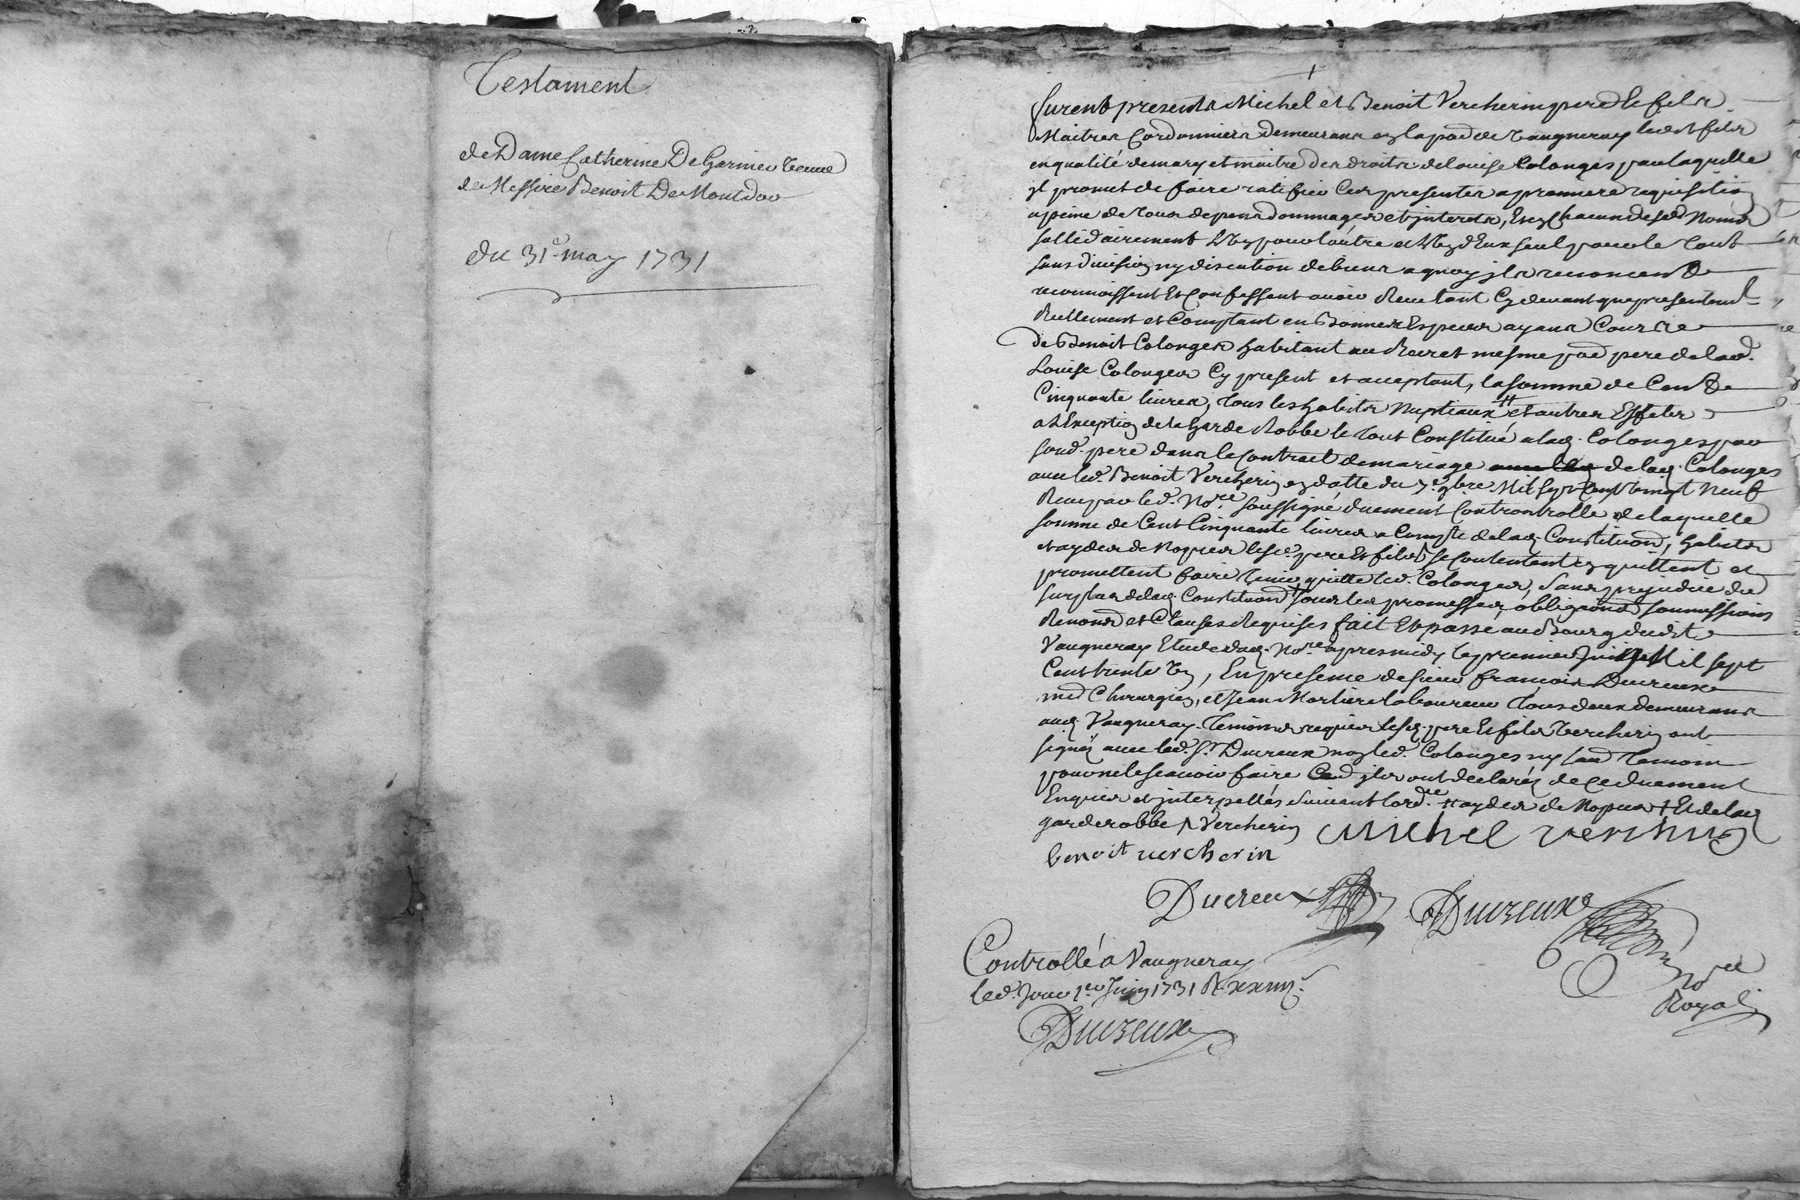 Testament
de Dame Catherine De Garnier veuve
de Messire Benoit De Montdor
du 31e may 1731
furent presents Michel et Benoit Vercherin pere et fils
Maitres Cordonniers demeurans en la par de Vaugneray led fils
en qualité de mary et maitre des droits de Louise Colonges par laquelle
il promet de faire ratifier Ces presentes a premiere requisition
a peine de tous depens dommages et interets, Lesq chacun desd Noms
sollidairement l'un pour l'autre et l'un d'Eux seul pour le tout
sans division ny discution de biens a quoy ils renoncent
reconnoissent Et Confessent avoir Receu tant Cy devant que presentemt
Reellement et Comptant en Bonnes Especes ayans Cours
de Benoit Colonges habitant au et mesme par pere de lad.
Louise Colonges Cy present et acceptant, la somme de Cent
Cinquante livres, tous les habits Nuptiaux # et autres Effets
a L'Exception de la Garde Robbe le tout Constitué a lad. Colonges par
sond. pere dans le Contract de mariage de lad. Colonges
avec led. Benoit Vercherin en datte du 7e 9bre Mil sept Cent vingt Neuf
Receu par led. Nore soussigné duement Controntrollé de laquelle
somme de Cent Cinquante livres a Compte de lad. Constitution, habits
et aydes de Nopces lesd. pere Et fils se Contentent en quittent et
promettent faire tenir quitte led. Colonges, sans prejudice du
surplus de lad. Constitution sous les promesses obligaons soumissions
Renonons et Clauses Requises fait Et passé au Bourg dudit
Vaugneray Etude dud. Nore apres midy le premier Juin Mil sept
Cent trente Un, En presence de sieur francois Ducreux
md Chirurgien, et Jean Mortier laboureur tous deux demeurans
aud. Vaugneray temoins requis lesd. pere Et fils Vercherin ont
signé avec led. Sr Ducreux non led. Colonges ny l'autre temoin
pour ne le scavoir faire Comme ils ont declaré de ce duement
Enquis et interpellés suivant l'ordce # aydes de Nopces + Et de lad
garderobbe /. Vercherin Michel verchrin
benoit vercherin
Ducreux Ducreux
Nore
Royal
Controllé a Vaugneray
led. Jour 1er Juin 1731
Ducreux